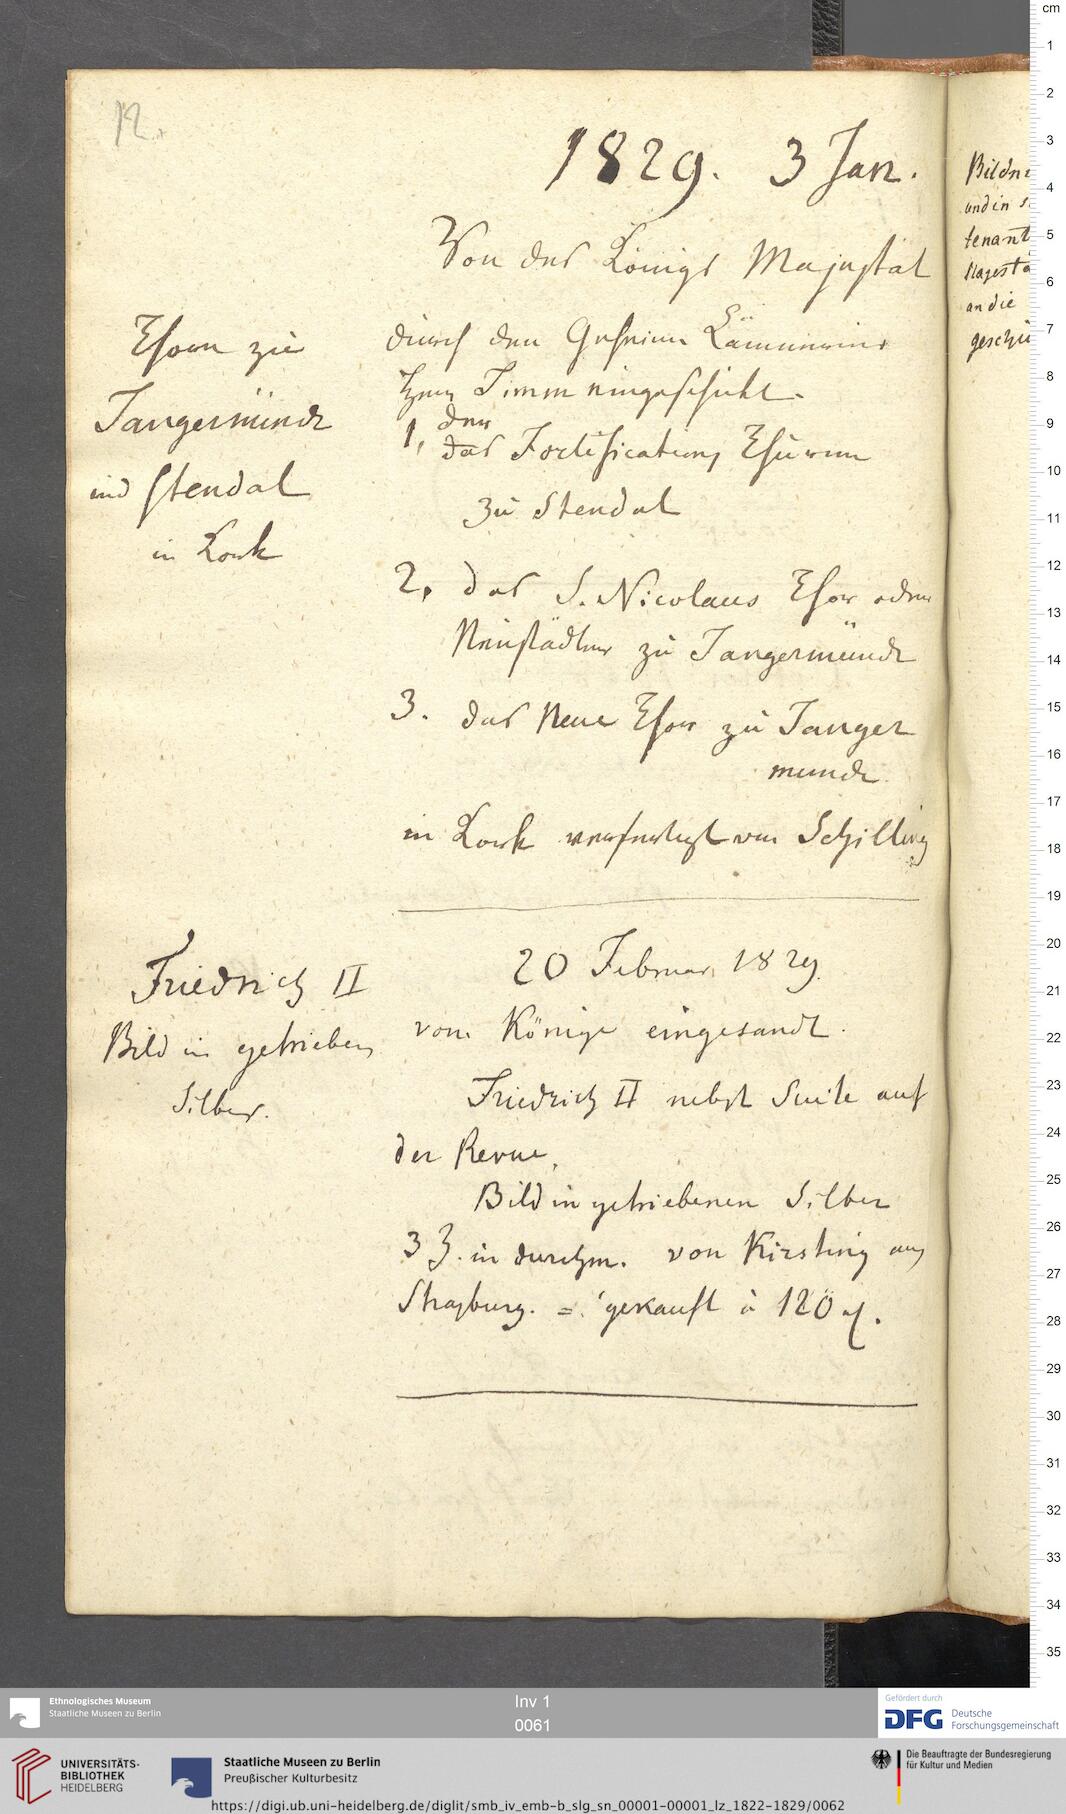 12.
1829. 3 Jan.
Von des Königs Majestät
durch den Geheimen Kämmerier
Herrn Timm eingeschickt.
1, den
das Fortifications Thurm
zu Stendal
2, das S. Nicolaus Thor oder
Neustädter zu Tangermünde
3. das Neue Thor zu Tanger
munde
in Kork verfertigt von Schilling
Thore zu
Tangermünde
und Stendal
in Kork
20 Februar 1829.
vom Könige eingesandt.
Friedrich II nebst Suite auf
der Revue,
Bild in getriebenen Silber
3 Z. in durchm. von Kirsting aus
Strasburg. = gekauft à 120
Friedrich II
Bild in getrieben
Silber.
Bildni
und in
tenant
Majestä
an die
geschi
cm
1
2
3
4
5
6
7
8
9
10
11
12
13
14
15
16
17
18
19
20
21
22
23
24
25
26
27
28
29
30
31
32
33
34
35
Ethnologisches Museum
Staatliche Museen zu Berlin
Inv 1
0061
Gefördert durch
DFG Deutsche
Forschungsgemeinschaft
UNIVERSITÄTS-
BIBLIOTHEK
HEIDELBERG
Staatliche Museen zu Berlin
Preußischer Kulturbesitz
Die Beauftragte der Bundesregierung
für Kultur und Medien
https://digi.ub.uni-heidelberg.de/diglit/smb_iv_emb-b_slg_sn_00001-00001_lz_1822-1829/0062